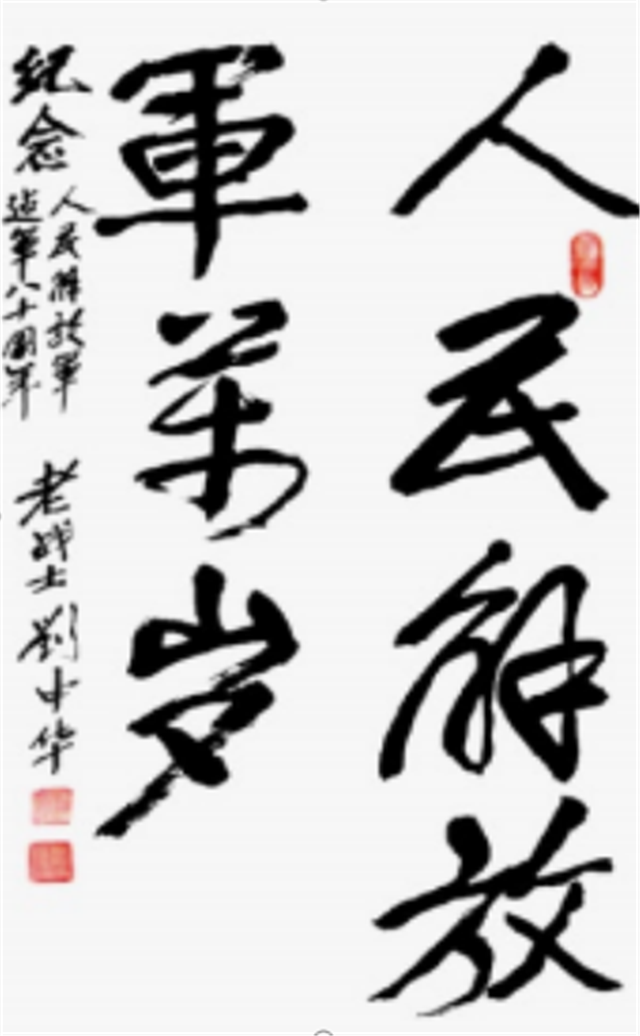 人民解放
軍萬岁
纪念
人民解放军
建军八十周年
老战士刘中华